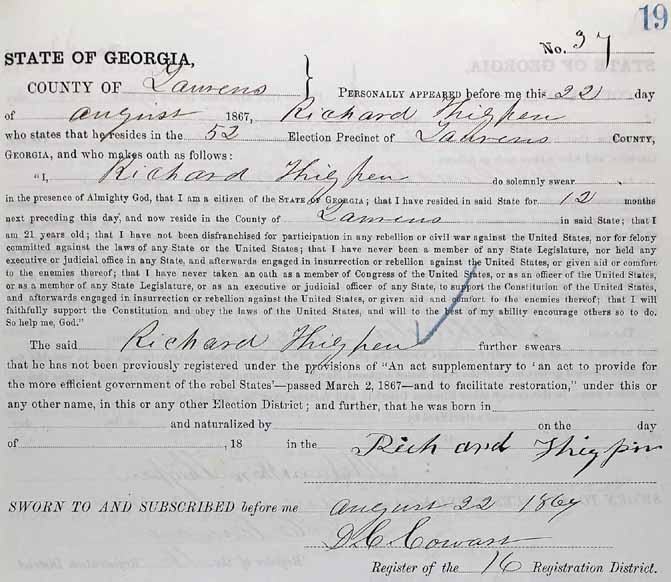 19
No. 37
STATE OF GEORGIA,
COUNTY OF Laurens } PERSONALLY APPEARED before me this 22 day
of august 1867, Richard Thigpen
who states that he resides in the 52 Election Precinct of Laurens COUNTY,
GEORGIA, and who makes oath as follows:
"I, Richard Thigpen do solemnly swear
in the presence of Almighty God, that I am a citizen of the STATE OF GEORGIA; that I have resided in said State for 12 months
next preceding this day, and now reside in the County of Laurens in said State; that I
am 21 years old; that I have not been disfranchised for participation in any rebellion or civil war against the United States, nor for felony
committed against the laws of any State or the United States; that I have never been a member of any State Legislature, nor held any
executive or judicial office in any State, and afterwards engaged in insurrection or rebellion against the United States, or given aid or comfort
to the enemies thereof; that I have never taken an oath as a member of Congress of the United States, or as an officer of the United States,
or as a member of any State Legislature, or as an executive or judicial officer of any State, to support the Constitution of the United States,
and afterwards engaged in insurrection or rebellion against the United States, or given aid and comfort to the enemies thereof; that I will
faithfully support the Constitution and obey the laws of the United States, and will to the best of my ability encourage others so to do.
So help me, God."
The said Richard Thigpen further swears
that he has not been previously registered under the provisions of "An act supplementary to 'an act to provide for
the more efficient government of the rebel States'—passed March 2, 1867—and to facilitate restoration," under this or
any other name, in this or any other Election District; and further, that he was born in
and naturalized by on the day
of , 18 in the Richard Thigpin
SWORN TO AND SUBSCRIBED before me august 22 1867
D. C. Cowart
Register of the 16 Registration District.